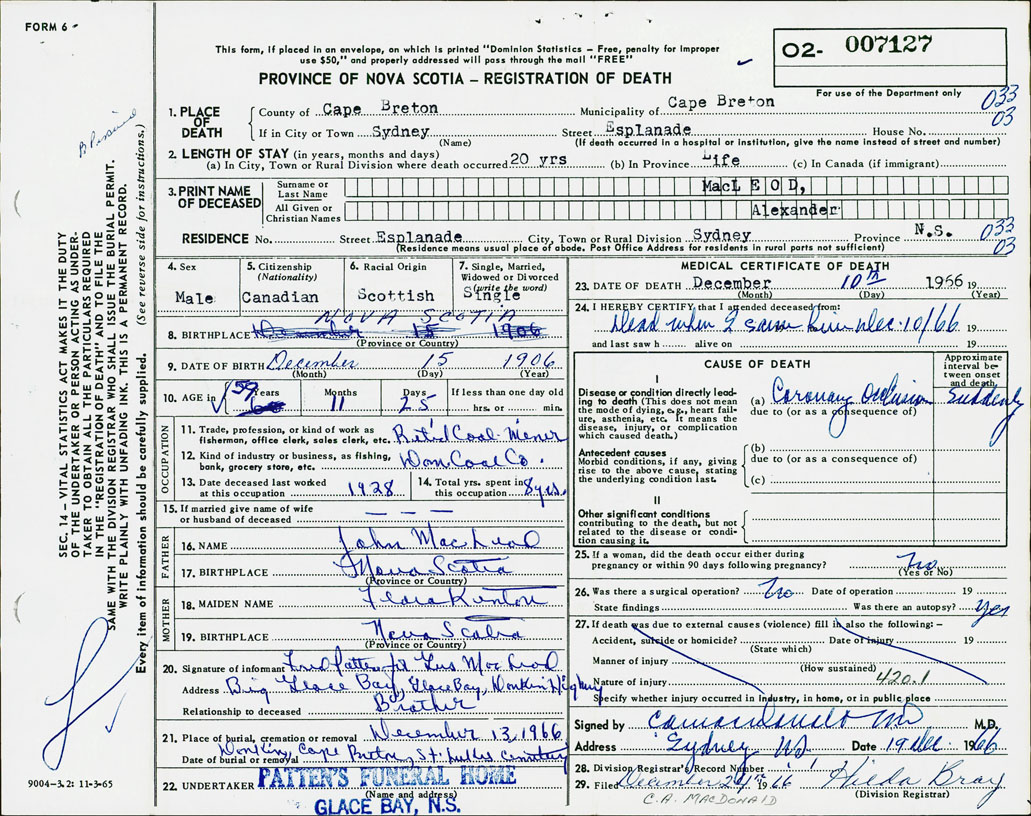 FORM 6
This form, if placed in an envelope, on which is printed "Dominion Statistics – Free, penalty for improper
use $50," and properly addressed will pass through the mail "FREE"
PROVINCE OF NOVA SCOTIA – REGISTRATION OF DEATH
02- 007127
For use of the Department only
033
03
1. PLACE OF DEATH County of Cape Breton Municipality of Cape Breton
If in City or Town Sydney Street Esplanade House No.
(Name) (If death occurred in a hospital or institution, give the name instead of street and number)
2. LENGTH OF STAY (in years, months and days)
(a) In City, Town or Rural Division where death occurred 20 yrs (b) In Province Life (c) In Canada (if immigrant)
3. PRINT NAME OF DECEASED Surname or Last Name MacLEOD,
All Given or Christian Names Alexander
RESIDENCE No. Street Esplanade City, Town or Rural Division Sydney Province N.S. 033
03
(Residence means usual place of abode. Post Office Address for residents in rural parts not sufficient)
4. Sex Male
5. Citizenship (Nationality) Canadian
6. Racial Origin Scottish
7. Single, Married, Widowed or Divorced (write the word) Single
NOVA SCOTIA
8. BIRTHPLACE December 15 1906
(Province or Country)
9. DATE OF BIRTH December 15 1906
(Month) (Day) (Year)
10. AGE in 59 Years 11 Months 25 Days If less than one day old hrs. or min.
OCCUPATION
11. Trade, profession, or kind of work as fisherman, office clerk, sales clerk, etc. Ret'd Coal Miner
12. Kind of industry or business, as fishing, bank, grocery store, etc. Dom Coal Co.
13. Date deceased last worked at this occupation 1928
14. Total yrs. spent in this occupation 8 yrs.
15. If married give name of wife or husband of deceased — — —
FATHER
16. NAME John MacLeod
17. BIRTHPLACE Nova Scotia
(Province or Country)
MOTHER
18. MAIDEN NAME Flora Kenton
19. BIRTHPLACE Nova Scotia
(Province or Country)
20. Signature of informant Fred Patten for Gus MacLeod
Address Big Glace Bay, Glace Bay, Donkin Highway
Relationship to deceased Brother
21. Place of burial, cremation or removal December 13, 1966
Date of burial or removal Donkin, Cape Breton, St. Lukes Cemetery
22. UNDERTAKER PATTEN'S FUNERAL HOME
(Name and address)
GLACE BAY, N.S.
MEDICAL CERTIFICATE OF DEATH
23. DATE OF DEATH December 10th 1966 19
(Month) (Day) (Year)
24. I HEREBY CERTIFY that I attended deceased from:
Dead when I saw him Dec. 10/66 19
and last saw h alive on 19
CAUSE OF DEATH
Approximate interval between onset and death
I
Disease or condition directly leading to death (This does not mean the mode of dying, e.g., heart failure, asthenia, etc. It means the disease, injury, or complication which caused death.)
(a) Coronary Occlusion Suddenly
due to (or as a consequence of)
Antecedent causes
Morbid conditions, if any, giving rise to the above cause, stating the underlying condition last.
(b)
due to (or as a consequence of)
(c)
II
Other significant conditions
contributing to the death, but not related to the disease or condition causing it.
25. If a woman, did the death occur either during
pregnancy or within 90 days following pregnancy? No
(Yes or No)
26. Was there a surgical operation? No Date of operation 19
State findings Was there an autopsy? Yes
27. If death was due to external causes (violence) fill in also the following:–
Accident, suicide or homicide? Date of injury 19
(State which)
Manner of injury
(How sustained)
Nature of injury 420.1
Specify whether injury occurred in industry, in home, or in public place
Signed by C A MacDonald MD M.D.
Address Sydney NS Date 19 Dec. 1966
28. Division Registrar's Record Number
29. Filed December 21st 1966 Hilda Bray
(Division Registrar)
C.A. MACDONALD
SEC. 14 – VITAL STATISTICS ACT MAKES IT THE DUTY
OF THE UNDERTAKER OR PERSON ACTING AS UNDER-
TAKER TO OBTAIN ALL THE PARTICULARS REQUIRED
IN THE "REGISTRATION OF DEATH" AND TO FILE THE
SAME WITH THE DIVISION REGISTRAR WHO SHALL ISSUE THE BURIAL PERMIT.
WRITE PLAINLY WITH UNFADING INK. THIS IS A PERMANENT RECORD.
Every item of information should be carefully supplied. (See reverse side for instructions.)
9004-3.2: 11-3-65